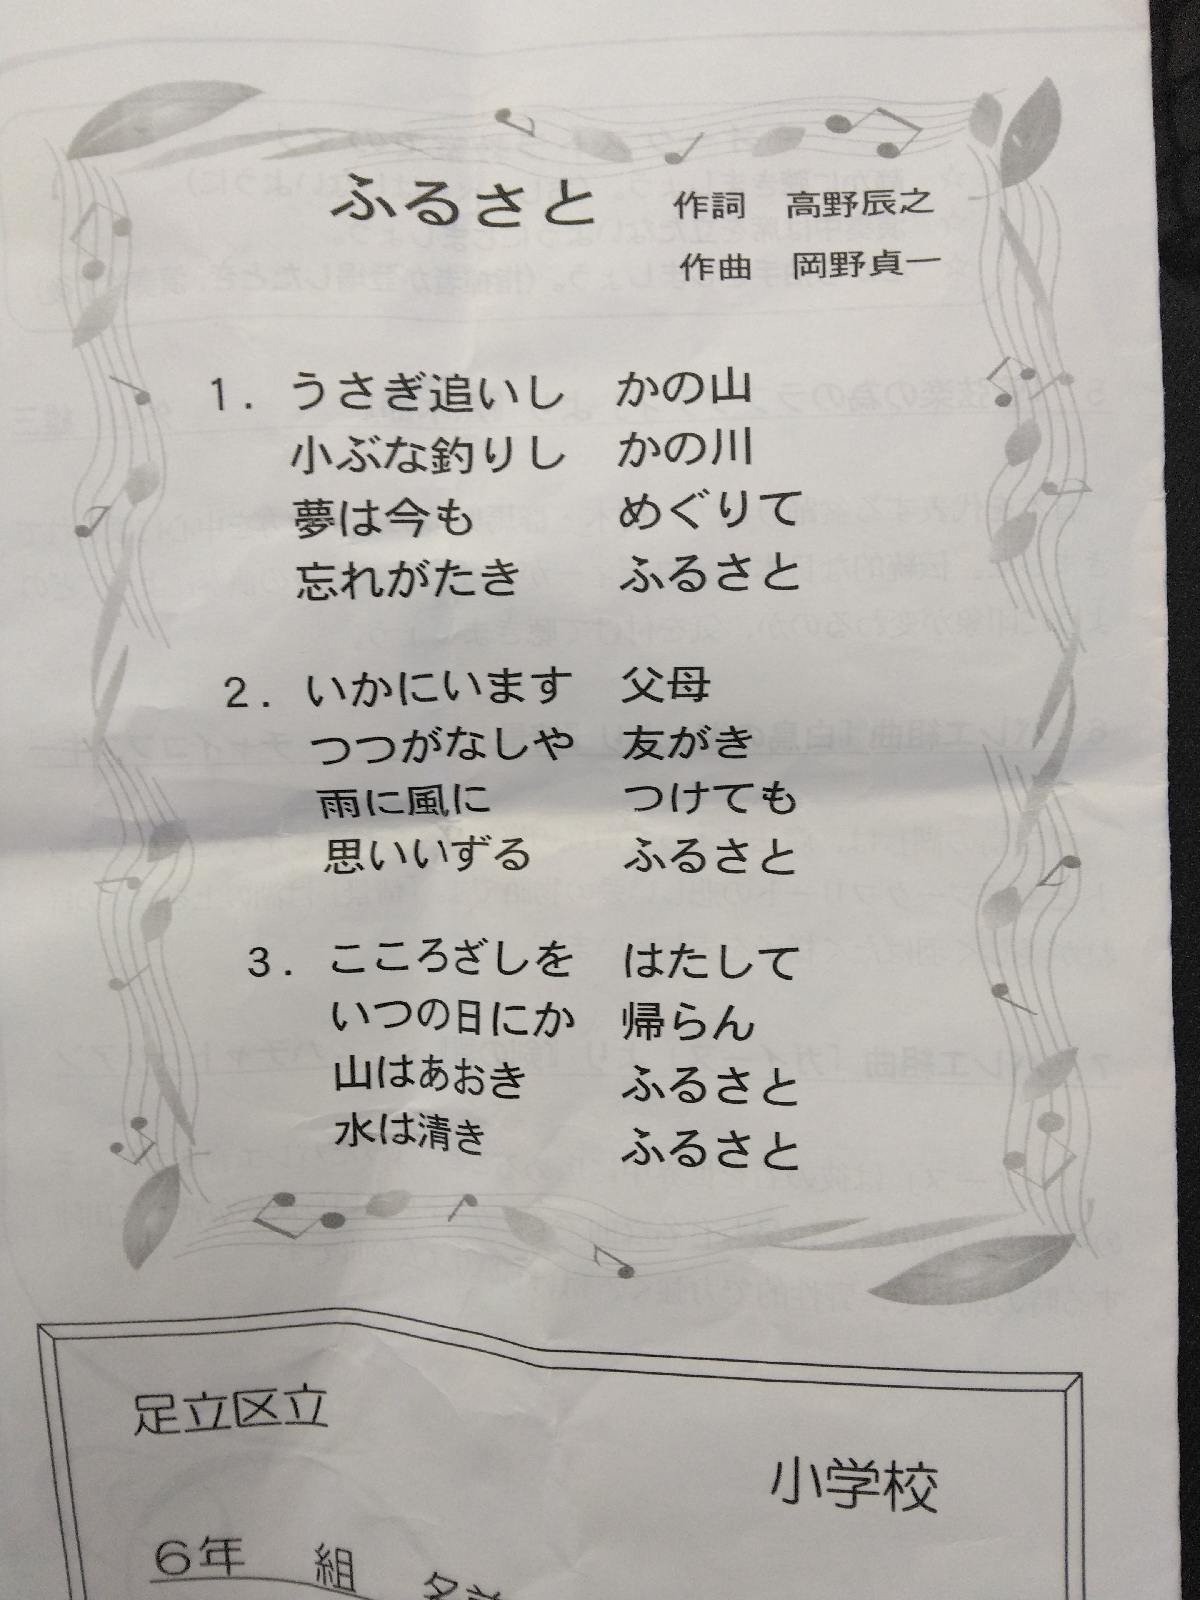 ふるさと 作詞 高野辰之
作曲 岡野貞一
1. うさぎ追いし かの山
小ぶな釣りし かの川
夢は今も めぐりて
忘れがたき ふるさと
2. いかにいます 父母
つつがなしや 友がき
雨に風に つけても
思いいずる ふるさと
3. こころざしを はたして
いつの日にか 帰らん
山はあおき ふるさと
水は清き ふるさと
足立区立
小学校
6年 組